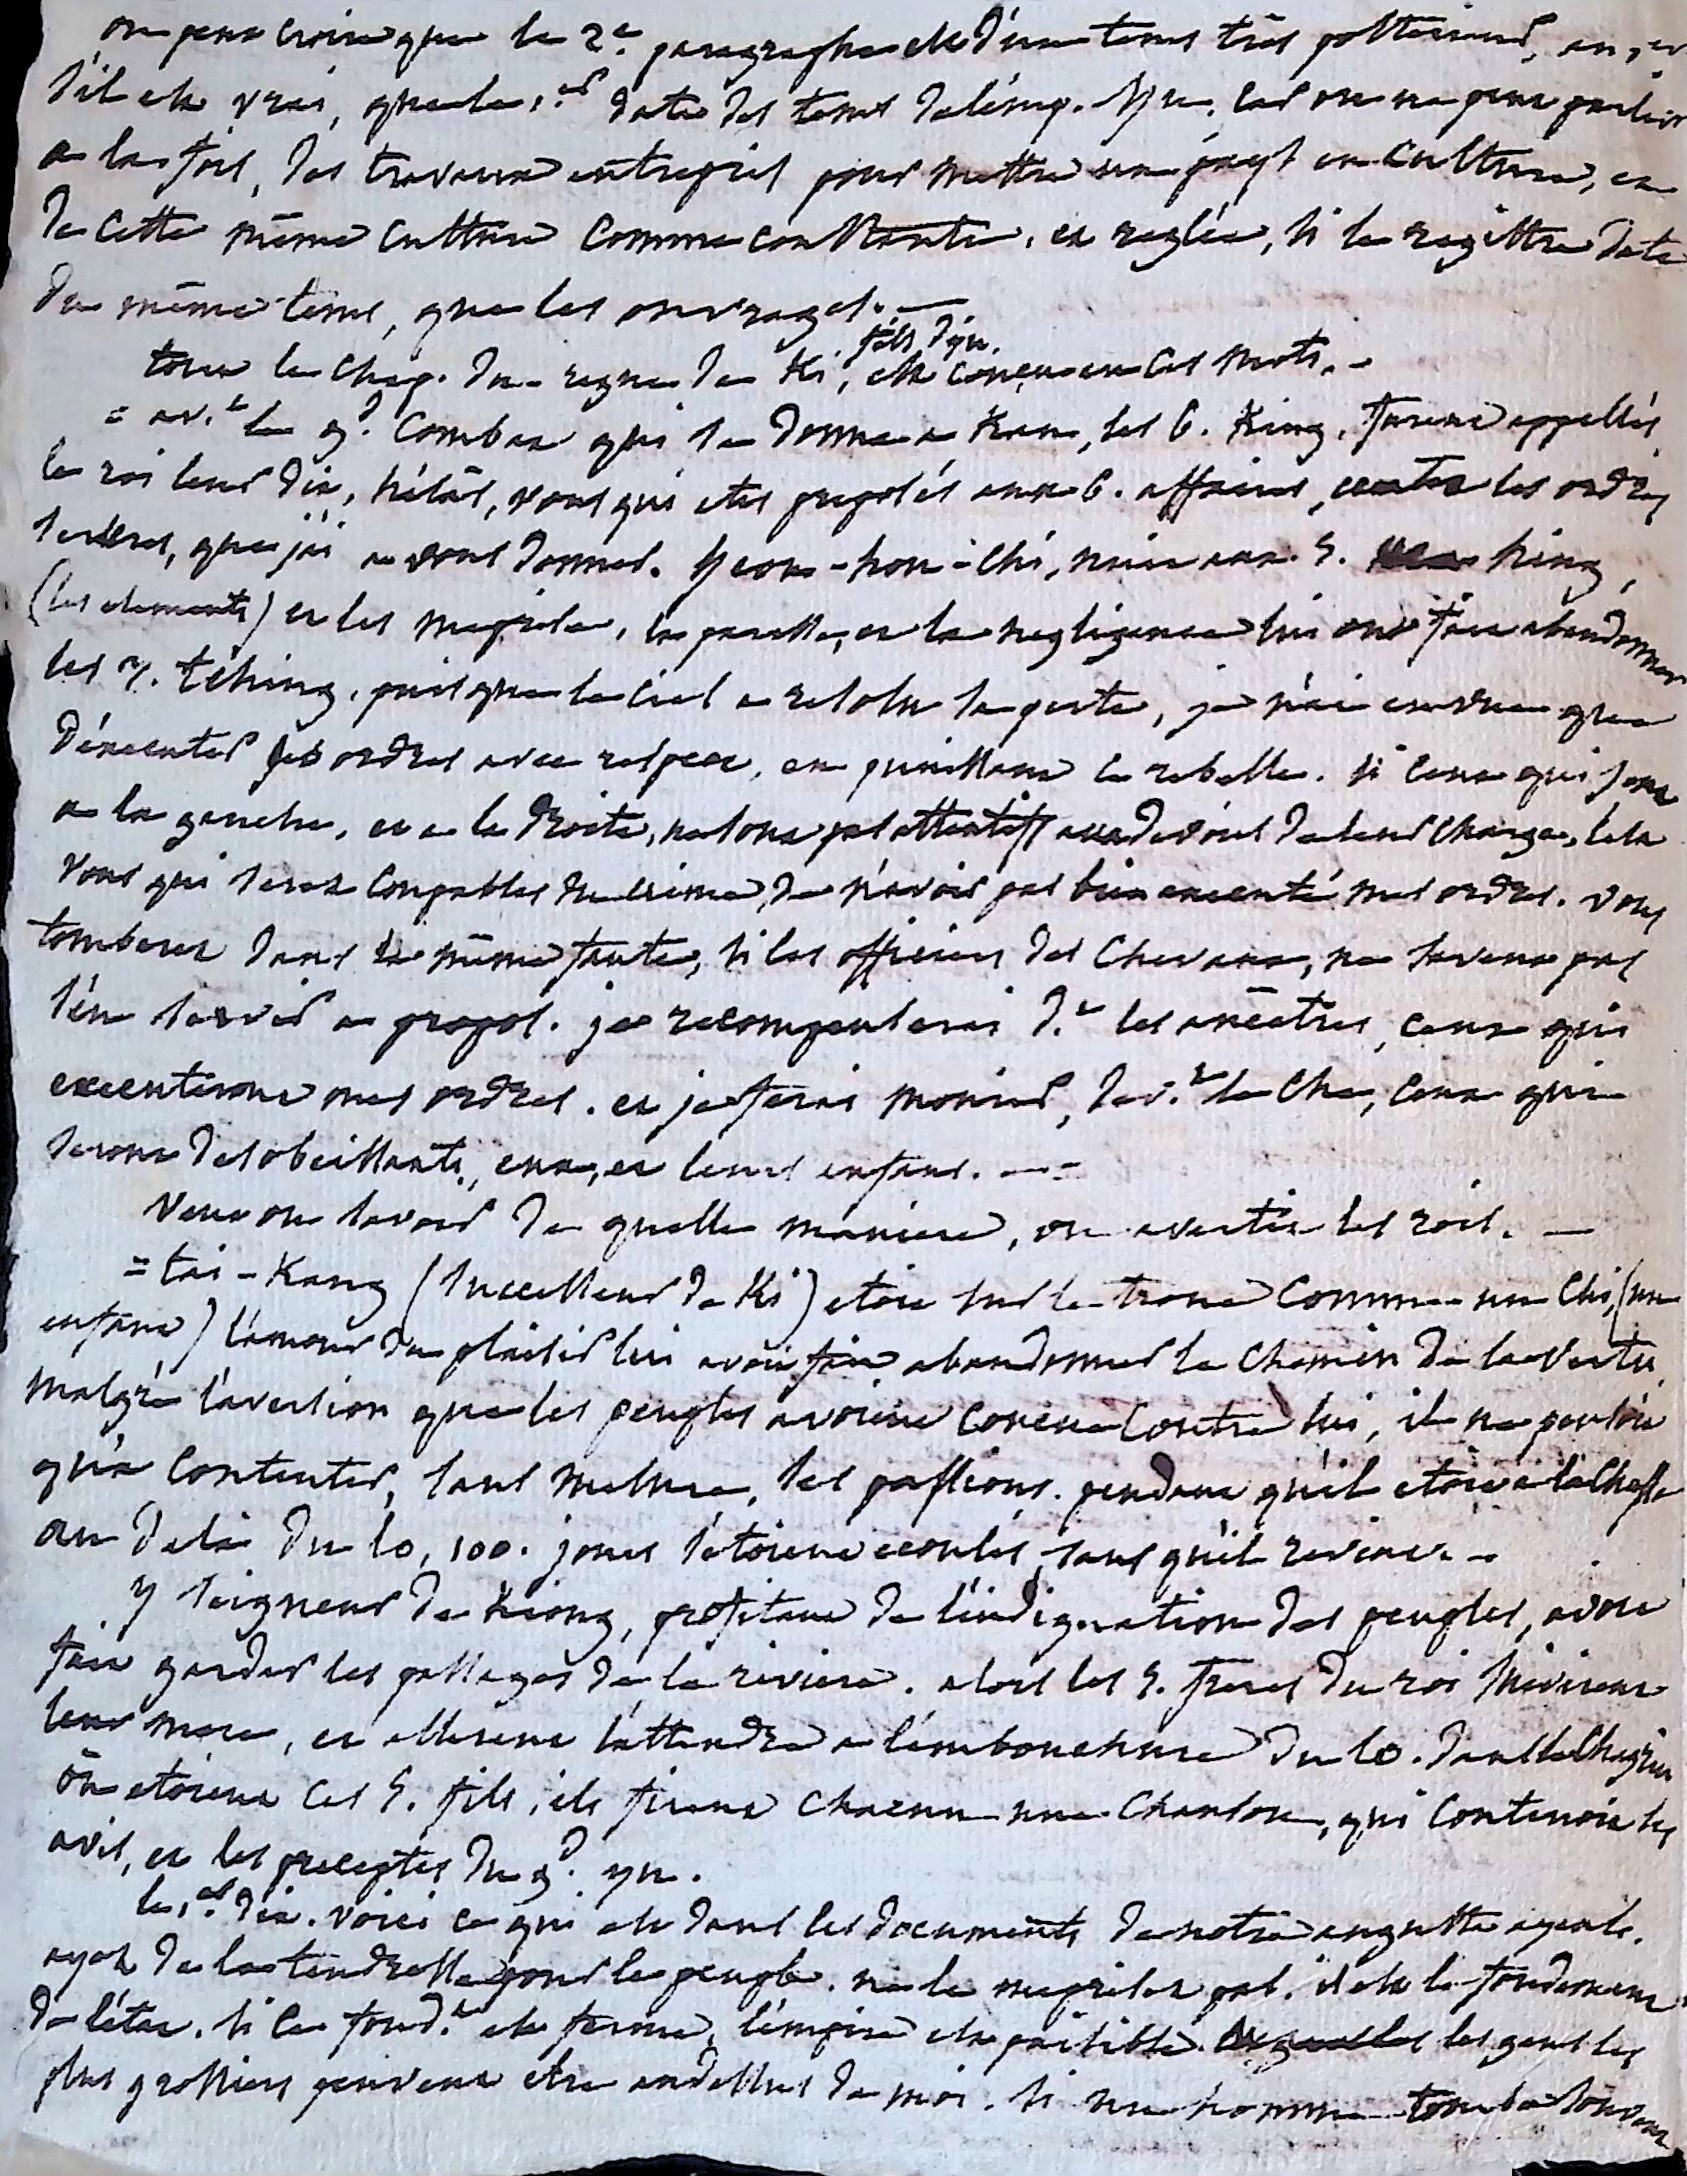 on peut croire que le 2.e paragraphe est d'un tems très postérieur, au 1.er
s'il est vrai, que le 1.er date des tems de l'emp. Yu. car on ne peut parler
a la fois, des travaux entrepris pour mettre un pays en culture, et
de cette même culture comme constante, et reglée, si le registre date
du même tems, que les ouvrages. —
tout le chap. du regne de Ki, fils d'yu. est conçu en ces mots. -
= av.t le g.d combat qui se donna a Kan, les 6. King, furent appellés
le roi leur dit, hélâs, vous qui etes preposés aux 6. affaires, ecoutez les ordres
severes, que j'ai a vous donner. Yeou-hou-chi, nuit aux 5. hing,
(les elements) et les meprise, la paresse, et la negligence lui ont fait abandonner
les 3. tching. puisque le ciel a resolu sa perte, je n'ai en vue que
d'executer ses ordres avec respect, en punissant le rebelle. si ceux qui sont
a la gauche, et a la droite, ne sont pas attentifs aux devoirs de leur charge, cela
vous qui serez coupables du crime, de n'avoir pas bien executé mes ordres. vous
tomberez dans la même faute, si les officiers des chevaux, ne savent pas
s'en servir a propos. je recompenserai d.t les ancêtres, ceux qui
executeront mes ordres. et je ferai mourir, dev.t le Che, ceux qui
seront desobeissants, eux, et leurs enfans. —=
veut on savoir de quelle maniere, on avertit les rois. —
= tai-Kang (successeur de Ki) etoit sur le trone comme un Chi, (un
enfant) l'amour du plaisir lui avoit fait abandonner le chemin de la vertu,
malgré l'aversion que les peuples avoient conçu contre lui, il ne pensoit
qu'a contenter, sans mesure, ses passions. pendant qu'il etoit a la chasse
au dela du lo, 100. jours s'etoient ecoulés, sans qu'il revint. -
Y seigneur de Kiong, profitant de l'indignation des peuples, avoit
fait garder les passages de la riviere. alors les 5. freres du roi suivirent
leur mere, et allerent l'attendre a l'embouchure du lo. dans le chagrin
ou etoient ces 5. fils, ils firent chacun une chanson, qui contenoit les
avis, et les preceptes du g.d yu.
le 1.er dit. voici ce qui est dans les documents de notre auguste ayeul.
ayez de la tendresse pour le peuple. ne le meprisez pas. il est le fondement
de l'état. si ce fond.t est ferme, l'empire est paisible. les gens les
plus grossiers peuvent etre au dessus de moi. si un homme tombe souvent